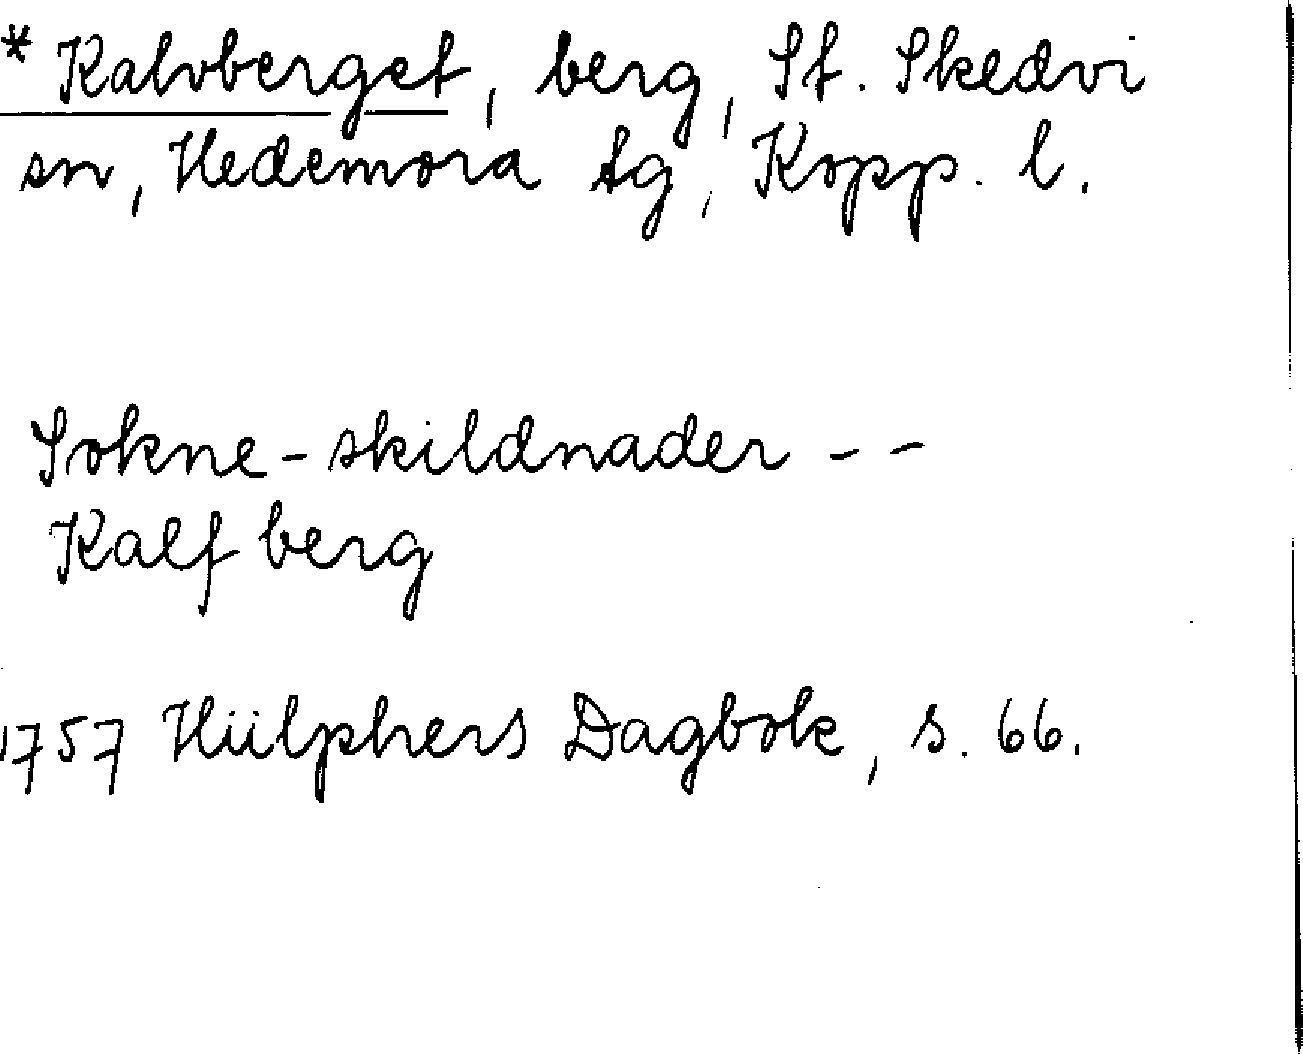 * Kalvberget, berg, St. Skedvi
sn, Hedemora tg, Kopp. l.
Sokne-skildnader - -
Kalf berg
1757 Hülphers Dagbok, s. 66.